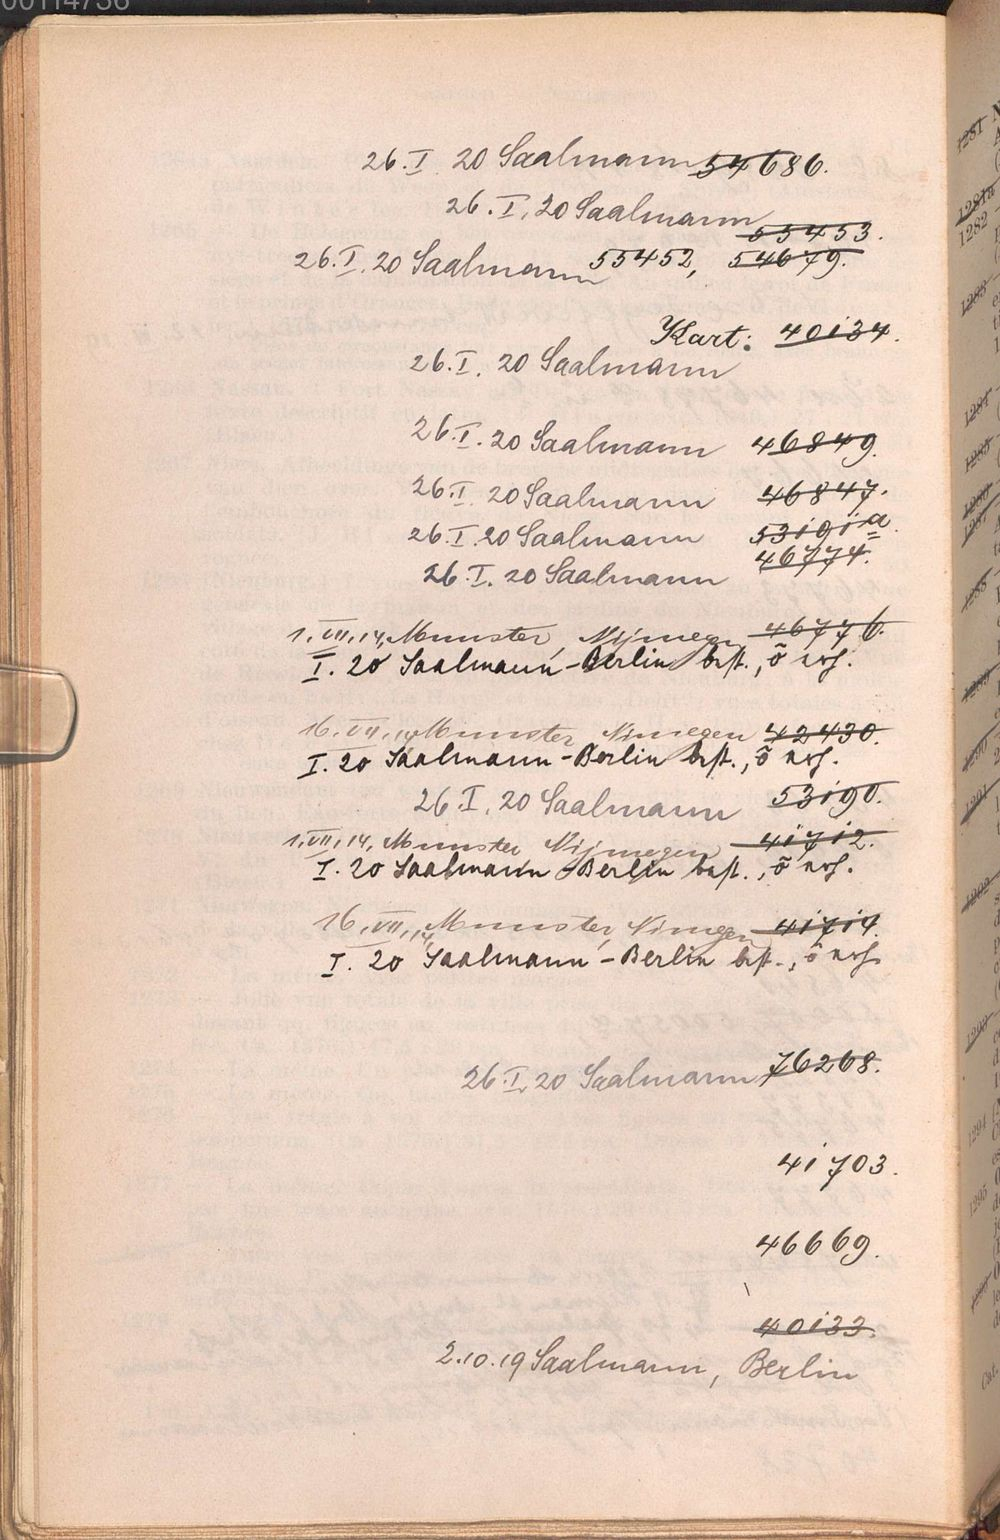 00114736
26.I 20 Saalmann 54686.
26.I.20 Saalmann
55453.
26.I.20 Saalmann 55452, 54679.
Kart: 40134.
26.I.20 Saalmann
26.I.20 Saalmann 46849.
26.I 20 Saalmann 46847.
26.I.20 Saalmann 53191a.
26.I.20 Saalmann 46774.
1.VII.14, Munster, Nijmegen 46776.
I.20 Saalmann-Berlin best.,
16.VII.14 Munster Nimegen 42430.
I.20 Saalmann-Berlin best.,
26.I.20 Saalmann 53190.
1.VII.14, Munster Nijmegen 41712.
I.20 Saalmann-Berlin best.,
16.VII.14, Munster, Nimegen 41714.
I.20 Saalmann-Berlin best.,
26.I.20 Saalmann 76268.
41703.
46669.
40133.
2.10.19 Saalmann, Berlin
1281
1281a
1282
1294
1295